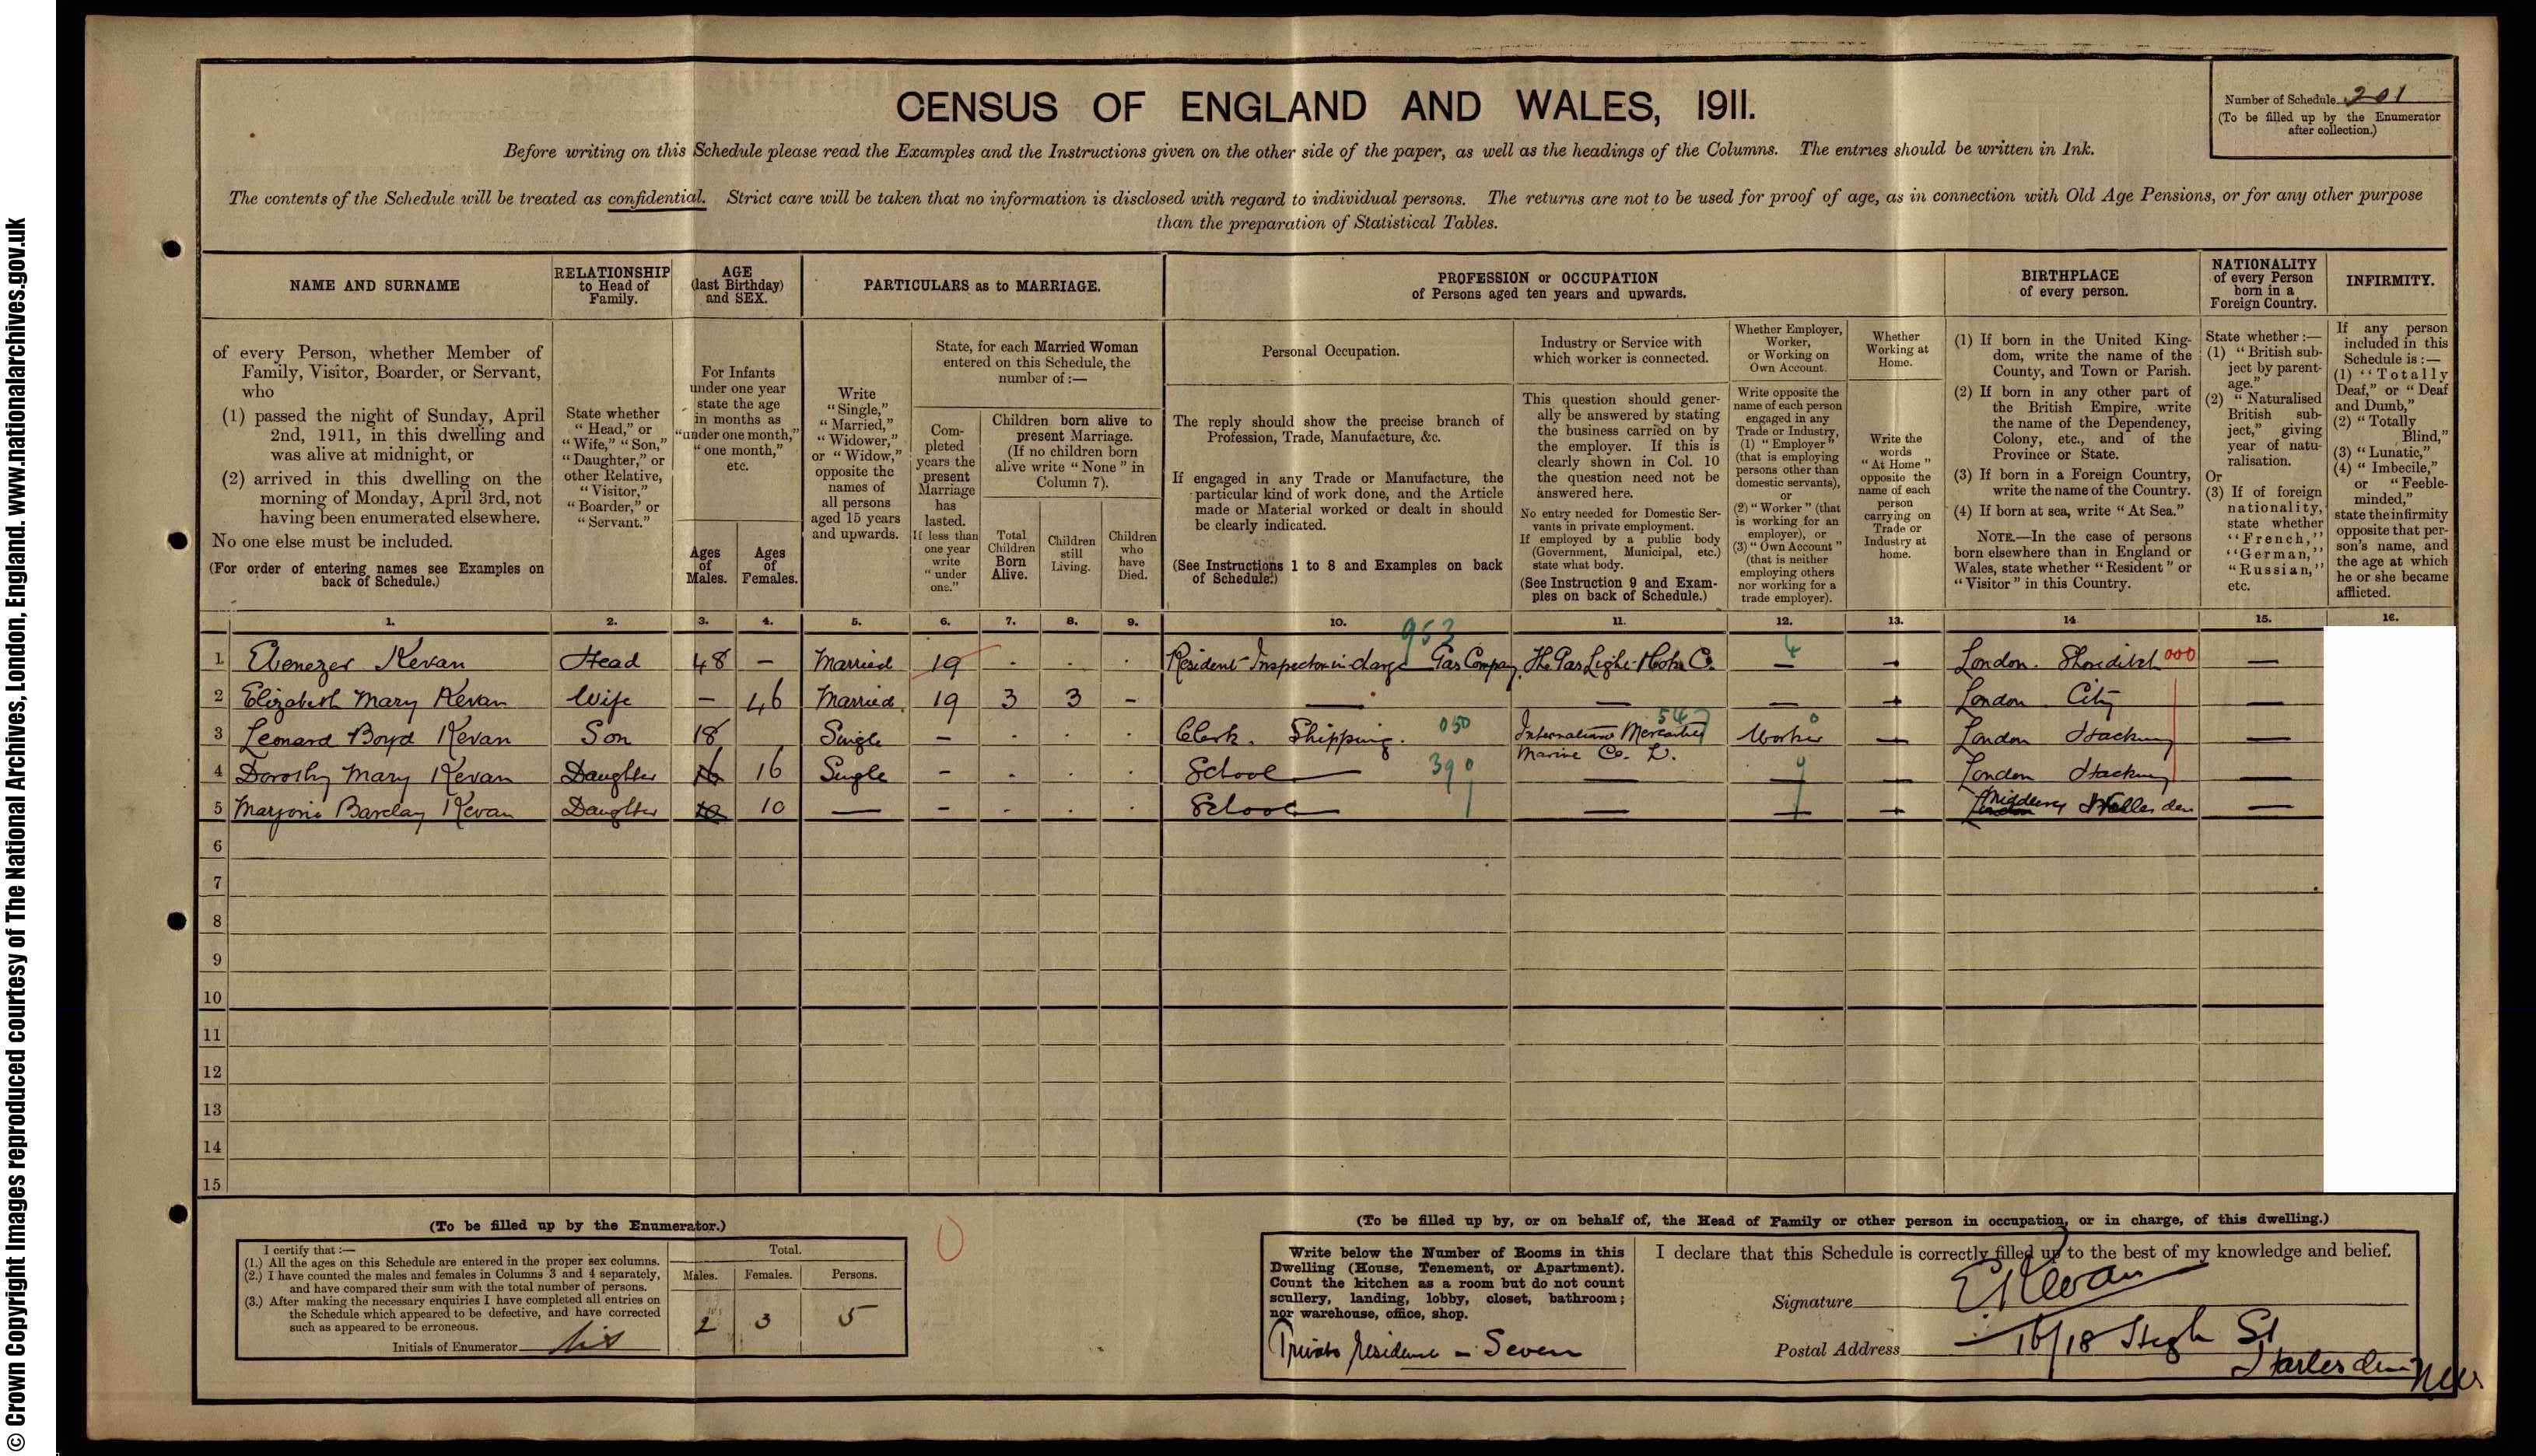 CENSUS OF ENGLAND AND WALES, 1911.
Number of Schedule 201
(To be filled up by the Enumerator
after collection.)
Before writing on this Schedule please read the Examples and the Instructions given on the other side of the paper, as well as the headings of the Columns. The entries should be written in Ink.
The contents of the Schedule will be treated as confidential. Strict care will be taken that no information is disclosed with regard to individual persons. The returns are not to be used for proof of age, as in connection with Old Age Pensions, or for any other purpose
than the preparation of Statistical Tables.
NAME AND SURNAME
RELATIONSHIP
to Head of
Family.
AGE
(last Birthday)
and SEX.
PARTICULARS as to MARRIAGE.
PROFESSION or OCCUPATION
of Persons aged ten years and upwards.
BIRTHPLACE
of every person.
NATIONALITY
of every Person
born in a
Foreign Country.
INFIRMITY.
of every Person, whether Member of
Family, Visitor, Boarder, or Servant,
who
(1) passed the night of Sunday, April
2nd, 1911, in this dwelling and
was alive at midnight, or
(2) arrived in this dwelling on the
morning of Monday, April 3rd, not
having been enumerated elsewhere.
No one else must be included.
(For order of entering names see Examples on
back of Schedule.)
State whether
"Head," or
"Wife," "Son,"
"Daughter," or
other Relative,
"Visitor,"
"Boarder," or
"Servant."
For Infants
under one year
state the age
in months as
"under one month,"
"one month,"
etc.
Ages
of
Males.
Ages
of
Females.
Write
"Single,"
"Married,"
"Widower,"
or "Widow,"
opposite the
names of
all persons
aged 15 years
and upwards.
State, for each Married Woman
entered on this Schedule, the
number of :—
Com-
pleted
years the
present
Marriage
has
lasted.
If less than
one year
write
"under
one."
Children born alive to
present Marriage.
(If no children born
alive write "None" in
Column 7).
Total
Children
Born
Alive.
Children
still
Living.
Children
who
have
Died.
Personal Occupation.
The reply should show the precise branch of
Profession, Trade, Manufacture, &c.
If engaged in any Trade or Manufacture, the
particular kind of work done, and the Article
made or Material worked or dealt in should
be clearly indicated.
(See Instructions 1 to 8 and Examples on back
of Schedule.)
Industry or Service with
which worker is connected.
This question should gener-
ally be answered by stating
the business carried on by
the employer. If this is
clearly shown in Col. 10
the question need not be
answered here.
No entry needed for Domestic Ser-
vants in private employment.
If employed by a public body
(Government, Municipal, etc.)
state what body.
(See Instruction 9 and Exam-
ples on back of Schedule.)
Whether Employer,
Worker,
or Working on
Own Account.
Write opposite the
name of each person
engaged in any
Trade or Industry,
(1) "Employer"
(that is employing
persons other than
domestic servants),
or
(2) "Worker" (that
is working for an
employer), or
(3) "Own Account"
(that is neither
employing others
nor working for a
trade employer).
Whether
Working at
Home.
Write the
words
"At Home"
opposite the
name of each
person
carrying on
Trade or
Industry at
home.
(1) If born in the United King-
dom, write the name of the
County, and Town or Parish.
(2) If born in any other part of
the British Empire, write
the name of the Dependency,
Colony, etc., and of the
Province or State.
(3) If born in a Foreign Country,
write the name of the Country.
(4) If born at sea, write "At Sea."
NOTE.—In the case of persons
born elsewhere than in England or
Wales, state whether "Resident" or
"Visitor" in this Country.
State whether :—
(1) "British sub-
ject by parent-
age."
(2) "Naturalised
British sub-
ject," giving
year of natu-
ralisation.
Or
(3) If of foreign
nationality,
state whether
"French,"
"German,"
"Russian,"
etc.
If any person
included in this
Schedule is :—
(1) "Totally
Deaf," or "Deaf
and Dumb,"
(2) "Totally
Blind,"
(3) "Lunatic,"
(4) "Imbecile,"
or "Feeble-
minded,"
state the infirmity
opposite that per-
son's name, and
the age at which
he or she became
afflicted.
1. 2. 3. 4. 5. 6. 7. 8. 9. 10. 11. 12. 13. 14 15. 16.
953
1 Ebenezer Kevan Head 48 – Married 19 Resident Inspector in charge Gas Company The Gas Light & Coke Co. — — London. Shoreditch 000 —
2 Elizabeth Mary Kevan Wife – 46 Married 19 3 3 – — — — — London City —
3 Leonard Boyd Kevan Son 18 Single – Clerk. Shipping. 050 International Mercantile 547 Worker — London Hackney —
Marine Co. L.
4 Dorothy Mary Kevan Daughter 16 16 Single – School 390 — — London Hackney —
5 Marjorie Barclay Kevan Daughter 10 10 — – School — — — London Middlesex Willesden —
6
7
8
9
10
11
12
13
14
15
(To be filled up by the Enumerator.)
I certify that :—
(1.) All the ages on this Schedule are entered in the proper sex columns.
(2.) I have counted the males and females in Columns 3 and 4 separately,
and have compared their sum with the total number of persons.
(3.) After making the necessary enquiries I have completed all entries on
the Schedule which appeared to be defective, and have corrected
such as appeared to be erroneous.
Initials of Enumerator
Total.
Males. Females. Persons.
2 3 5
(To be filled up by, or on behalf of, the Head of Family or other person in occupation, or in charge, of this dwelling.)
Write below the Number of Rooms in this
Dwelling (House, Tenement, or Apartment).
Count the kitchen as a room but do not count
scullery, landing, lobby, closet, bathroom;
nor warehouse, office, shop.
Private residence – Seven
I declare that this Schedule is correctly filled up to the best of my knowledge and belief.
Signature E Kevan
Postal Address 16/18 High St
Harlesden NW
© Crown Copyright Images reproduced courtesy of The National Archives, London, England. www.nationalarchives.gov.uk